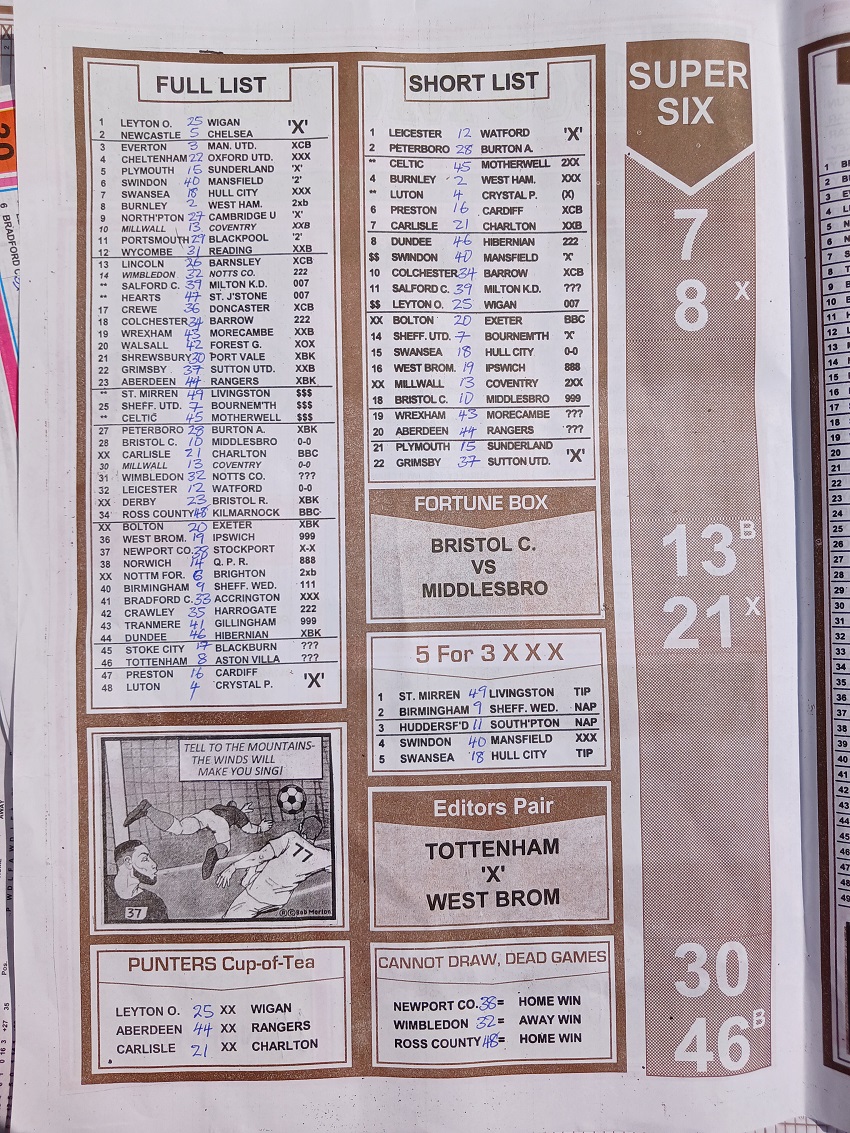 FULL LIST
1 LEYTON O. 25 WIGAN 'X'
2 NEWCASTLE 5 CHELSEA
3 EVERTON 3 MAN. UTD. XCB
4 CHELTENHAM 22 OXFORD UTD. XXX
5 PLYMOUTH 15 SUNDERLAND 'X'
6 SWINDON 40 MANSFIELD '2'
7 SWANSEA 18 HULL CITY XXX
8 BURNLEY 2 WEST HAM. 2xb
9 NORTH'PTON 27 CAMBRIDGE U 'X'
10 MILLWALL 13 COVENTRY XXB
11 PORTSMOUTH 29 BLACKPOOL '2'
12 WYCOMBE 31 READING XXB
13 LINCOLN 26 BARNSLEY XCB
14 WIMBLEDON 32 NOTTS CO. 222
** SALFORD C. 39 MILTON K.D. 007
** HEARTS 47 ST. J'STONE 007
17 CREWE 36 DONCASTER XCB
18 COLCHESTER 34 BARROW 222
19 WREXHAM 43 MORECAMBE XXB
20 WALSALL 42 FOREST G. XOX
21 SHREWSBURY 30 PORT VALE XBK
22 GRIMSBY 37 SUTTON UTD. XXB
23 ABERDEEN 44 RANGERS XBK
** ST. MIRREN 49 LIVINGSTON $$$
25 SHEFF. UTD. 7 BOURNEM'TH $$$
** CELTIC 45 MOTHERWELL $$$
27 PETERBORO 28 BURTON A. XBK
28 BRISTOL C. 10 MIDDLESBRO 0-0
XX CARLISLE 21 CHARLTON BBC
30 MILLWALL 13 COVENTRY 0-0
31 WIMBLEDON 32 NOTTS CO. ???
32 LEICESTER 12 WATFORD 0-0
XX DERBY 23 BRISTOL R. XBK
34 ROSS COUNTY 48 KILMARNOCK BBC
XX BOLTON 20 EXETER XBK
36 WEST BROM. 19 IPSWICH 999
37 NEWPORT CO. 38 STOCKPORT X-X
38 NORWICH 14 Q. P. R. 888
XX NOTTM FOR. 6 BRIGHTON 2xb
40 BIRMINGHAM 9 SHEFF. WED. 111
41 BRADFORD C. 33 ACCRINGTON XXX
42 CRAWLEY 35 HARROGATE 222
43 TRANMERE 41 GILLINGHAM 999
44 DUNDEE 46 HIBERNIAN XBK
45 STOKE CITY 17 BLACKBURN ???
46 TOTTENHAM 8 ASTON VILLA ???
47 PRESTON 16 CARDIFF 'X'
48 LUTON 4 CRYSTAL P.
TELL TO THE MOUNTAINS-
THE WINDS WILL
MAKE YOU SING!
77
37
© Bob Morton
PUNTERS Cup-of-Tea
LEYTON O. 25 XX WIGAN
ABERDEEN 44 XX RANGERS
CARLISLE 21 XX CHARLTON
SHORT LIST
1 LEICESTER 12 WATFORD 'X'
2 PETERBORO 28 BURTON A.
** CELTIC 45 MOTHERWELL 2XX
4 BURNLEY 2 WEST HAM. XXX
** LUTON 4 CRYSTAL P. (X)
6 PRESTON 16 CARDIFF XCB
7 CARLISLE 21 CHARLTON XXB
8 DUNDEE 46 HIBERNIAN 222
$$ SWINDON 40 MANSFIELD 'X'
10 COLCHESTER 34 BARROW XCB
11 SALFORD C. 39 MILTON K.D. ???
$$ LEYTON O. 25 WIGAN 007
XX BOLTON 20 EXETER BBC
14 SHEFF. UTD. 7 BOURNEM'TH 'X'
15 SWANSEA 18 HULL CITY 0-0
16 WEST BROM. 19 IPSWICH 888
XX MILLWALL 13 COVENTRY 2XX
18 BRISTOL C. 10 MIDDLESBRO 999
19 WREXHAM 43 MORECAMBE ???
20 ABERDEEN 44 RANGERS ???
21 PLYMOUTH 15 SUNDERLAND 'X'
22 GRIMSBY 37 SUTTON UTD.
FORTUNE BOX
BRISTOL C.
VS
MIDDLESBRO
5 For 3 X X X
1 ST. MIRREN 49 LIVINGSTON TIP
2 BIRMINGHAM 9 SHEFF. WED. NAP
3 HUDDERSF'D 11 SOUTH'PTON NAP
4 SWINDON 40 MANSFIELD XXX
5 SWANSEA 18 HULL CITY TIP
Editors Pair
TOTTENHAM
'X'
WEST BROM
CANNOT DRAW, DEAD GAMES
NEWPORT CO. 38 = HOME WIN
WIMBLEDON 32 = AWAY WIN
ROSS COUNTY 48 = HOME WIN
SUPER
SIX
7
8 X
13 B
21 X
30
46 B